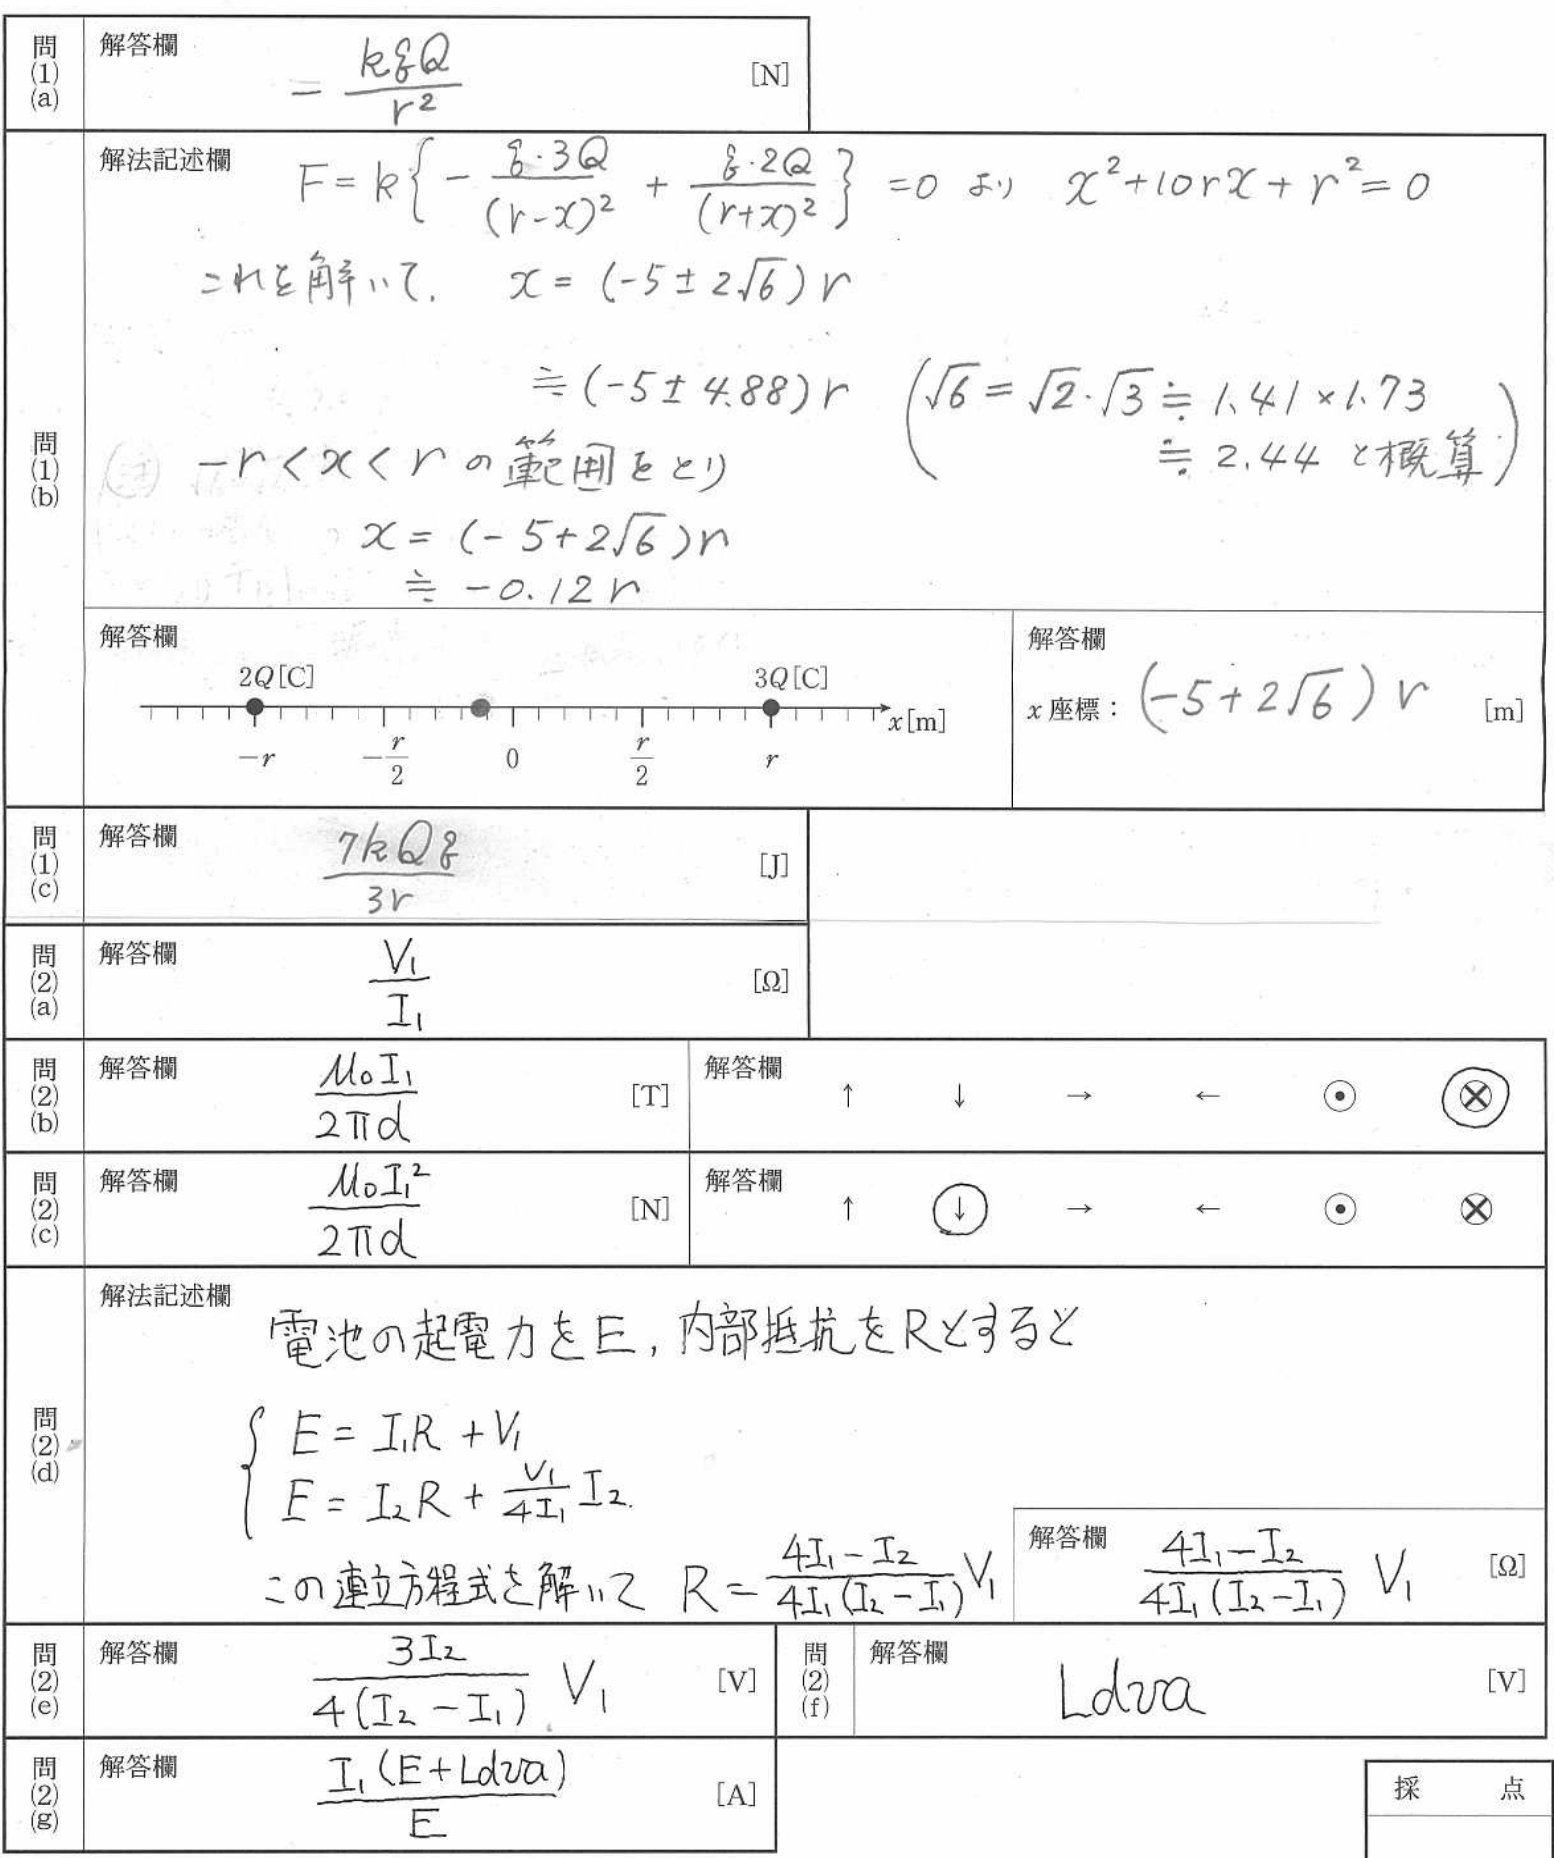 問(1)(a) 解答欄 = kqQ/r² [N]
問(1)(b) 解法記述欄 F = k{ - q·3Q/(r-x)² + q·2Q/(r+x)² } = 0 より x² + 10rx + r² = 0
これを解いて. x = (-5 ± 2√6) r
≒ (-5 ± 4.88) r (√6 = √2·√3 ≒ 1.41 × 1.73
-r < x < r の範囲をとり ≒ 2.44 と概算)
x = (-5 + 2√6) r
≒ -0.12 r
解答欄
2Q[C] 3Q[C]
x[m]
-r -r/2 0 r/2 r
解答欄
x座標: (-5 + 2√6) r [m]
問(1)(c) 解答欄 7kQq/3r [J]
問(2)(a) 解答欄 V₁/I₁ [Ω]
問(2)(b) 解答欄 μ₀I₁/2πd [T] 解答欄 ↑ ↓ → ← ⊙ ⊗
問(2)(c) 解答欄 μ₀I₁²/2πd [N] 解答欄 ↑ ↓ → ← ⊙ ⊗
問(2)(d) 解法記述欄
電池の起電力をE, 内部抵抗をRとすると
E = I₁R + V₁
E = I₂R + V₁/4I₁ I₂.
この連立方程式を解いて R = (4I₁ - I₂)/4I₁(I₂ - I₁) V₁
解答欄 (4I₁ - I₂)/4I₁(I₂ - I₁) V₁ [Ω]
問(2)(e) 解答欄 3I₂/4(I₂ - I₁) V₁ [V]
問(2)(f) 解答欄 Ldva [V]
問(2)(g) 解答欄 I₁(E + Ldva)/E [A]
採 点